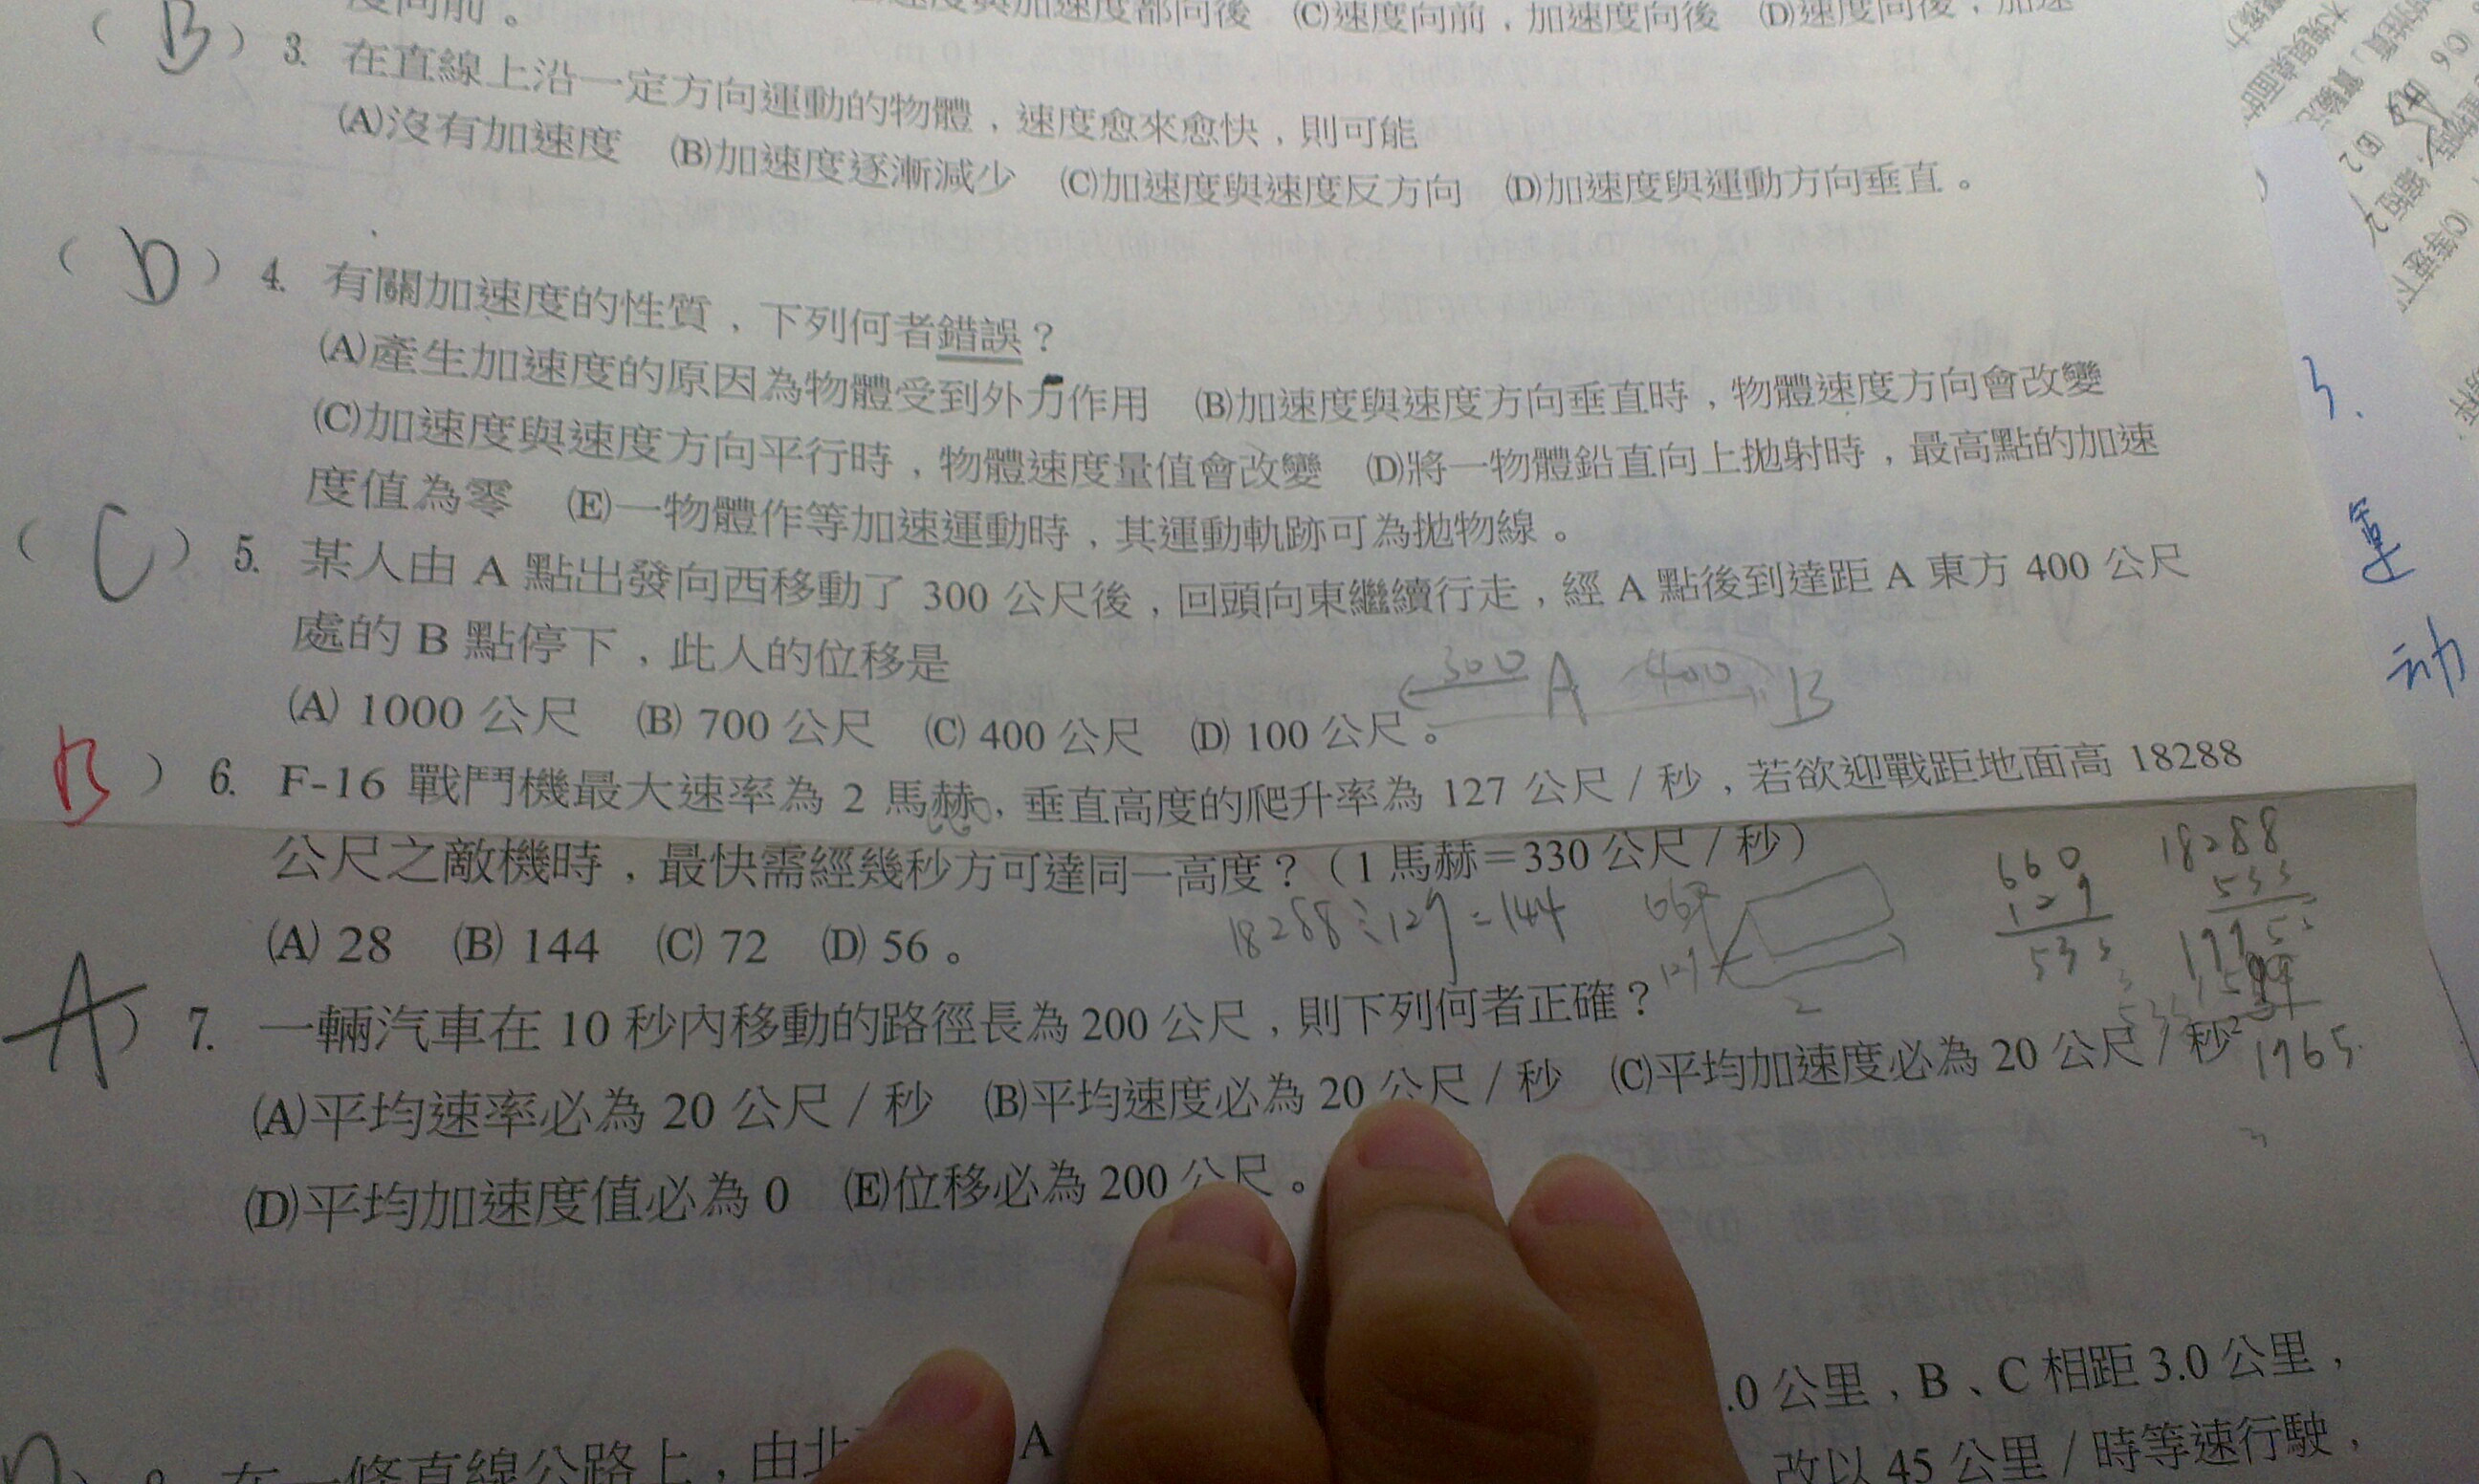 度與加速度都向後 (C)速度向前，加速度向後 (D)速度向後，加速
度向前。
( B ) 3. 在直線上沿一定方向運動的物體，速度愈來愈快，則可能
(A)沒有加速度 (B)加速度逐漸減少 (C)加速度與速度反方向 (D)加速度與運動方向垂直。
( D ) 4. 有關加速度的性質，下列何者錯誤？
(A)產生加速度的原因為物體受到外力作用 (B)加速度與速度方向垂直時，物體速度方向會改變
(C)加速度與速度方向平行時，物體速度量值會改變 (D)將一物體鉛直向上拋射時，最高點的加速
度值為零 (E)一物體作等加速運動時，其運動軌跡可為拋物線。
( C ) 5. 某人由 A 點出發向西移動了 300 公尺後，回頭向東繼續行走，經 A 點後到達距 A 東方 400 公尺
處的 B 點停下，此人的位移是
300 A 400 B
(A) 1000 公尺 (B) 700 公尺 (C) 400 公尺 (D) 100 公尺。
B ) 6. F-16 戰鬥機最大速率為 2 馬赫，垂直高度的爬升率為 127 公尺／秒，若欲迎戰距地面高 18288
公尺之敵機時，最快需經幾秒方可達同一高度？（1 馬赫＝330 公尺／秒）
18288÷127=144
660
127
533
18288
533
(A) 28 (B) 144 (C) 72 (D) 56。
2
1965
A ) 7. 一輛汽車在 10 秒內移動的路徑長為 200 公尺，則下列何者正確？
(A)平均速率必為 20 公尺／秒 (B)平均速度必為 20 公尺／秒 (C)平均加速度必為 20 公尺／秒²
(D)平均加速度值必為 0 (E)位移必為 200 公尺。
在一條直線公路上，由北 A .0 公里，B、C 相距 3.0 公里，
改以 45 公里／時等速行駛，
3.
運
动